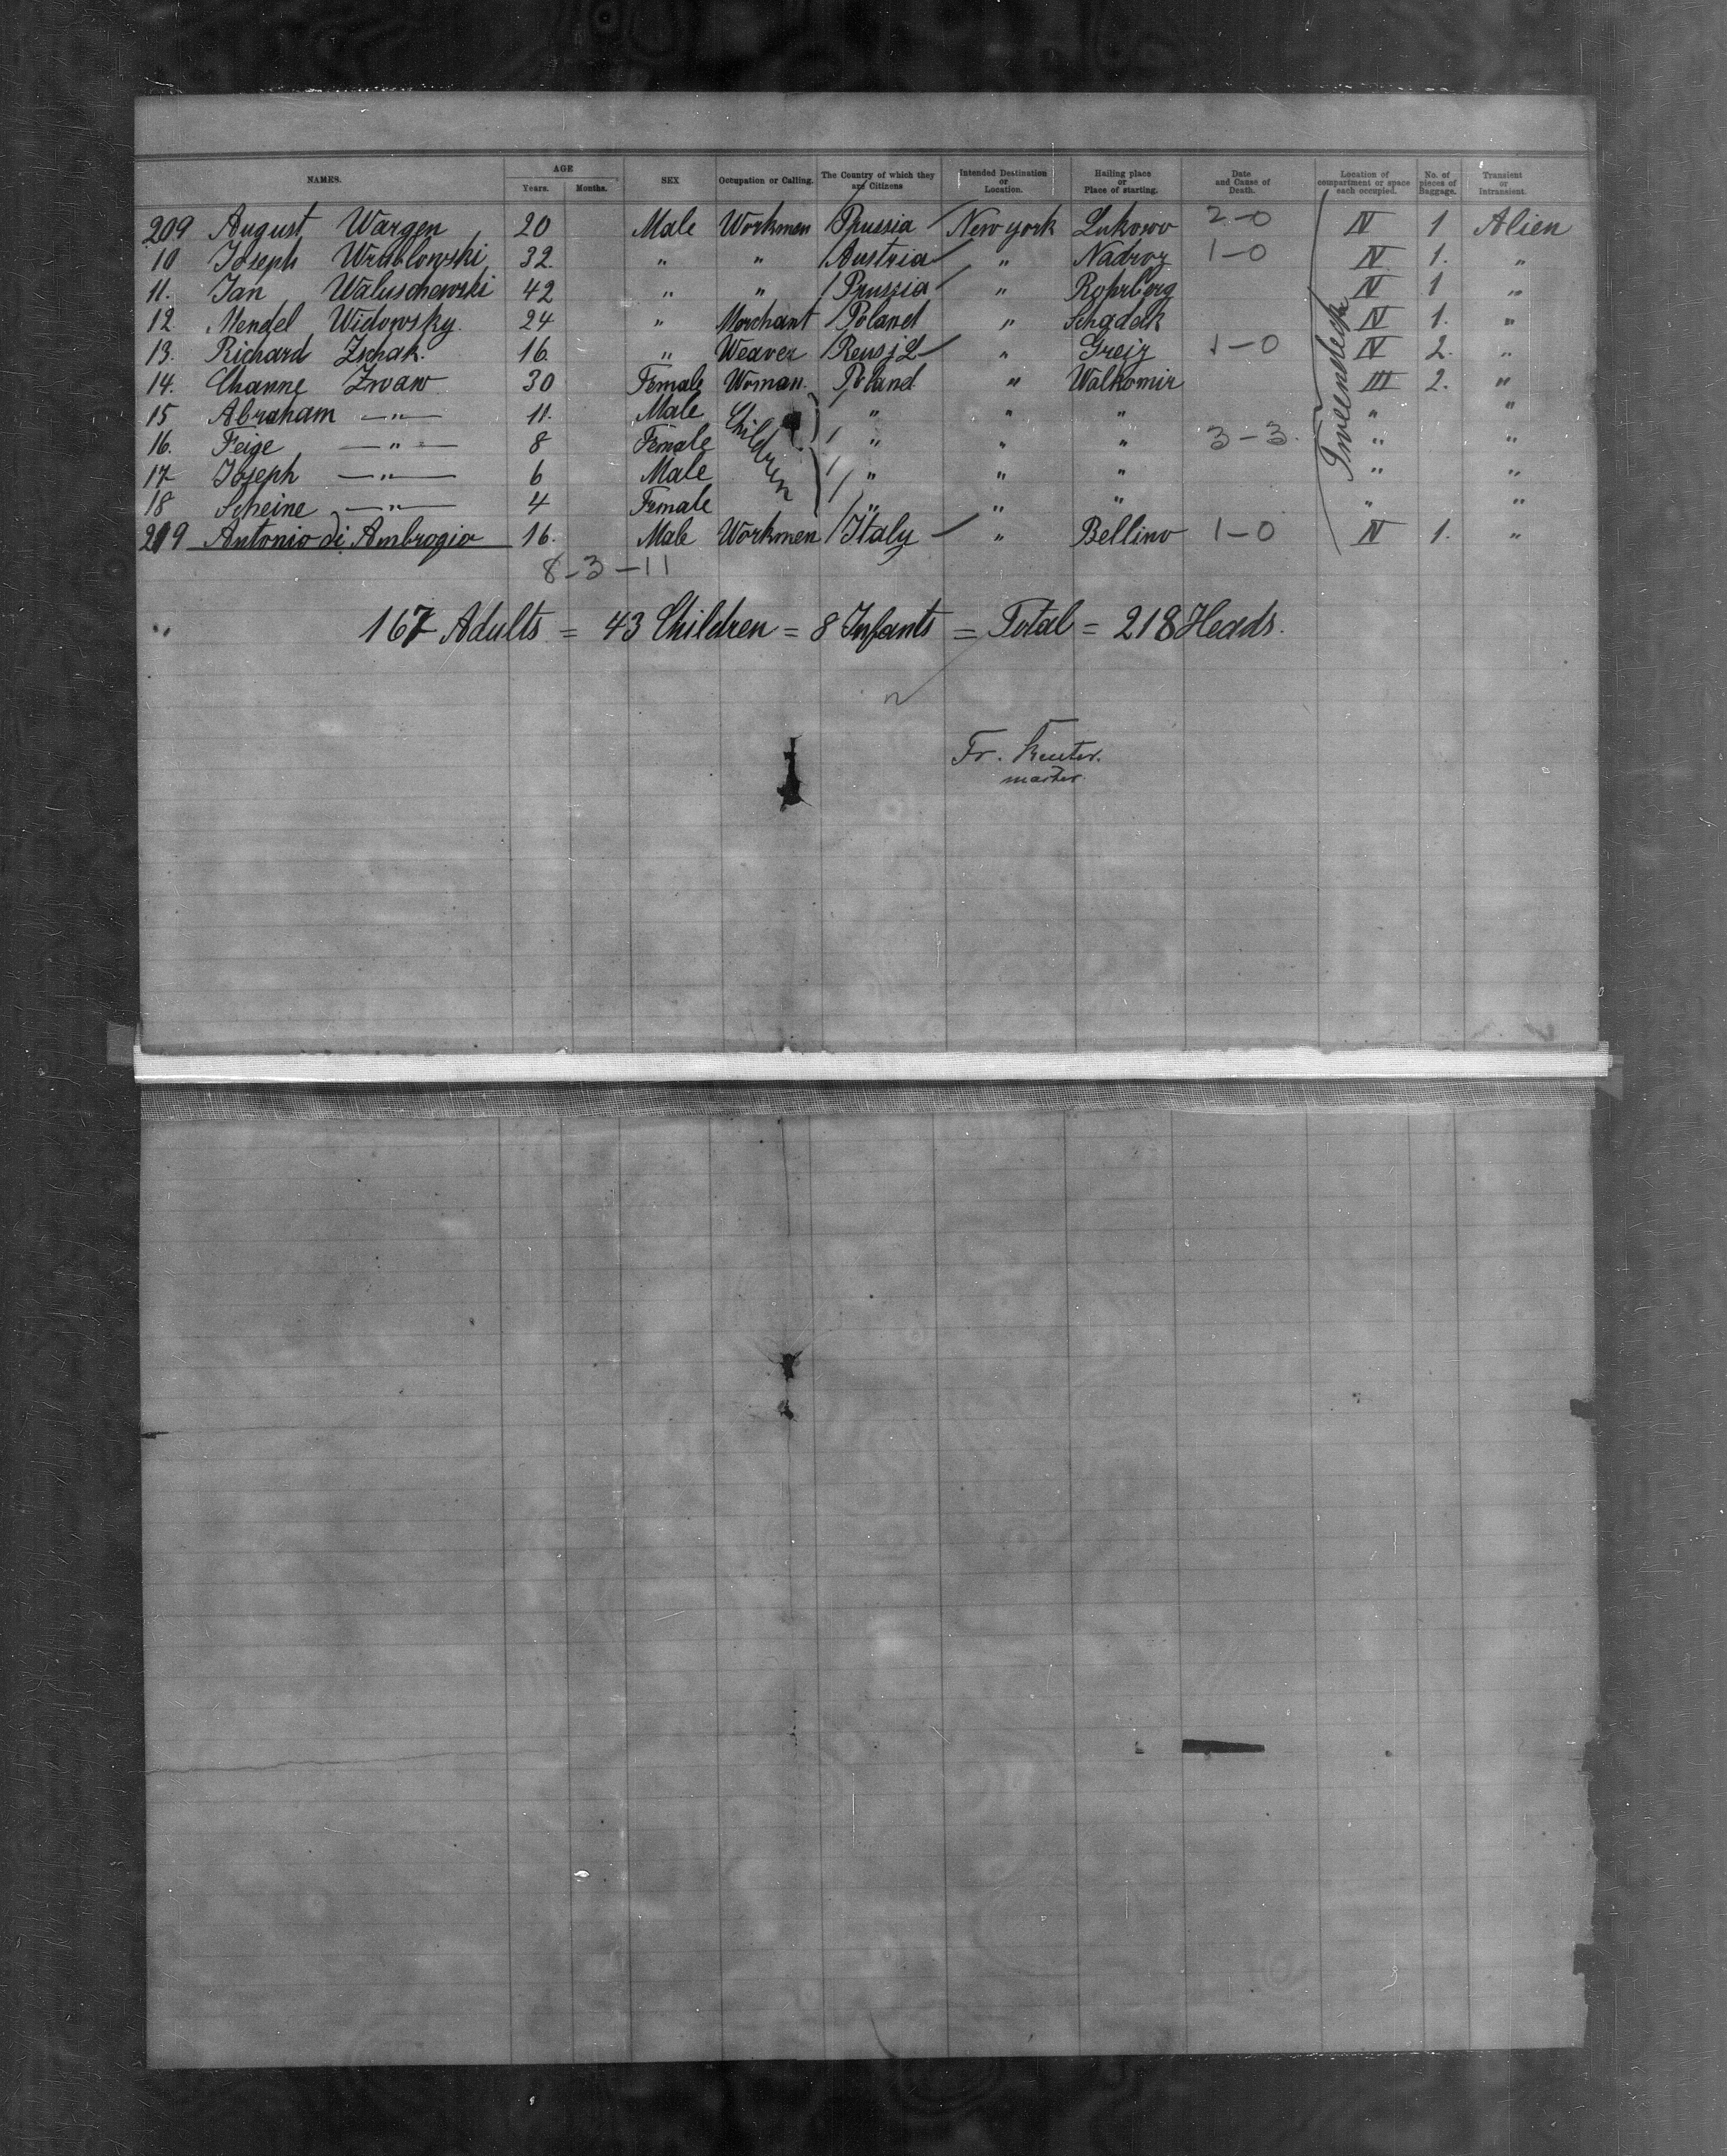 NAMES. AGE Years. Months. SEX Occupation or Calling. The Country of which they are Citizens Intended Destination or Location. Hailing place or Place of starting. Date and Cause of Death. Location of compartment or space each occupied. No. of pieces of Baggage. Transient or Intransient.
209 August Wargen 20 Male Workmen Prussia New york Lukosow 2-0 IV 1 Alien
10 Joseph Wrublowski 32 " " Austria " Nadroz 1-0 IV 1. "
11. Jan Waluschewski 42 " " Prussia " Rohrberg IV 1 "
12 Mendel Widowsky. 24 " Merchant Poland " Schadek IV 1. "
13. Richard Zschak. 16 " Weaver " Greiz 1-0 IV 2. "
14. Channe Zwaw 30 Female Woman. Poland " Walkomir III 2. "
15 Abraham —"— 11. Male Children " " " " "
16. Feige —"— 8 Female " " " 3-3. " "
17 Joseph —"— 6 Male " " " " "
18 Scheine —"— 4 Female " " " " "
219 Antonio di Ambrogio 16. Male Workmen Italy " Bellino 1-0 IV 1. "
8-3-11
167 Adults = 43 Children = 8 Infants = Total = 218 Heads.
Fr.
master.